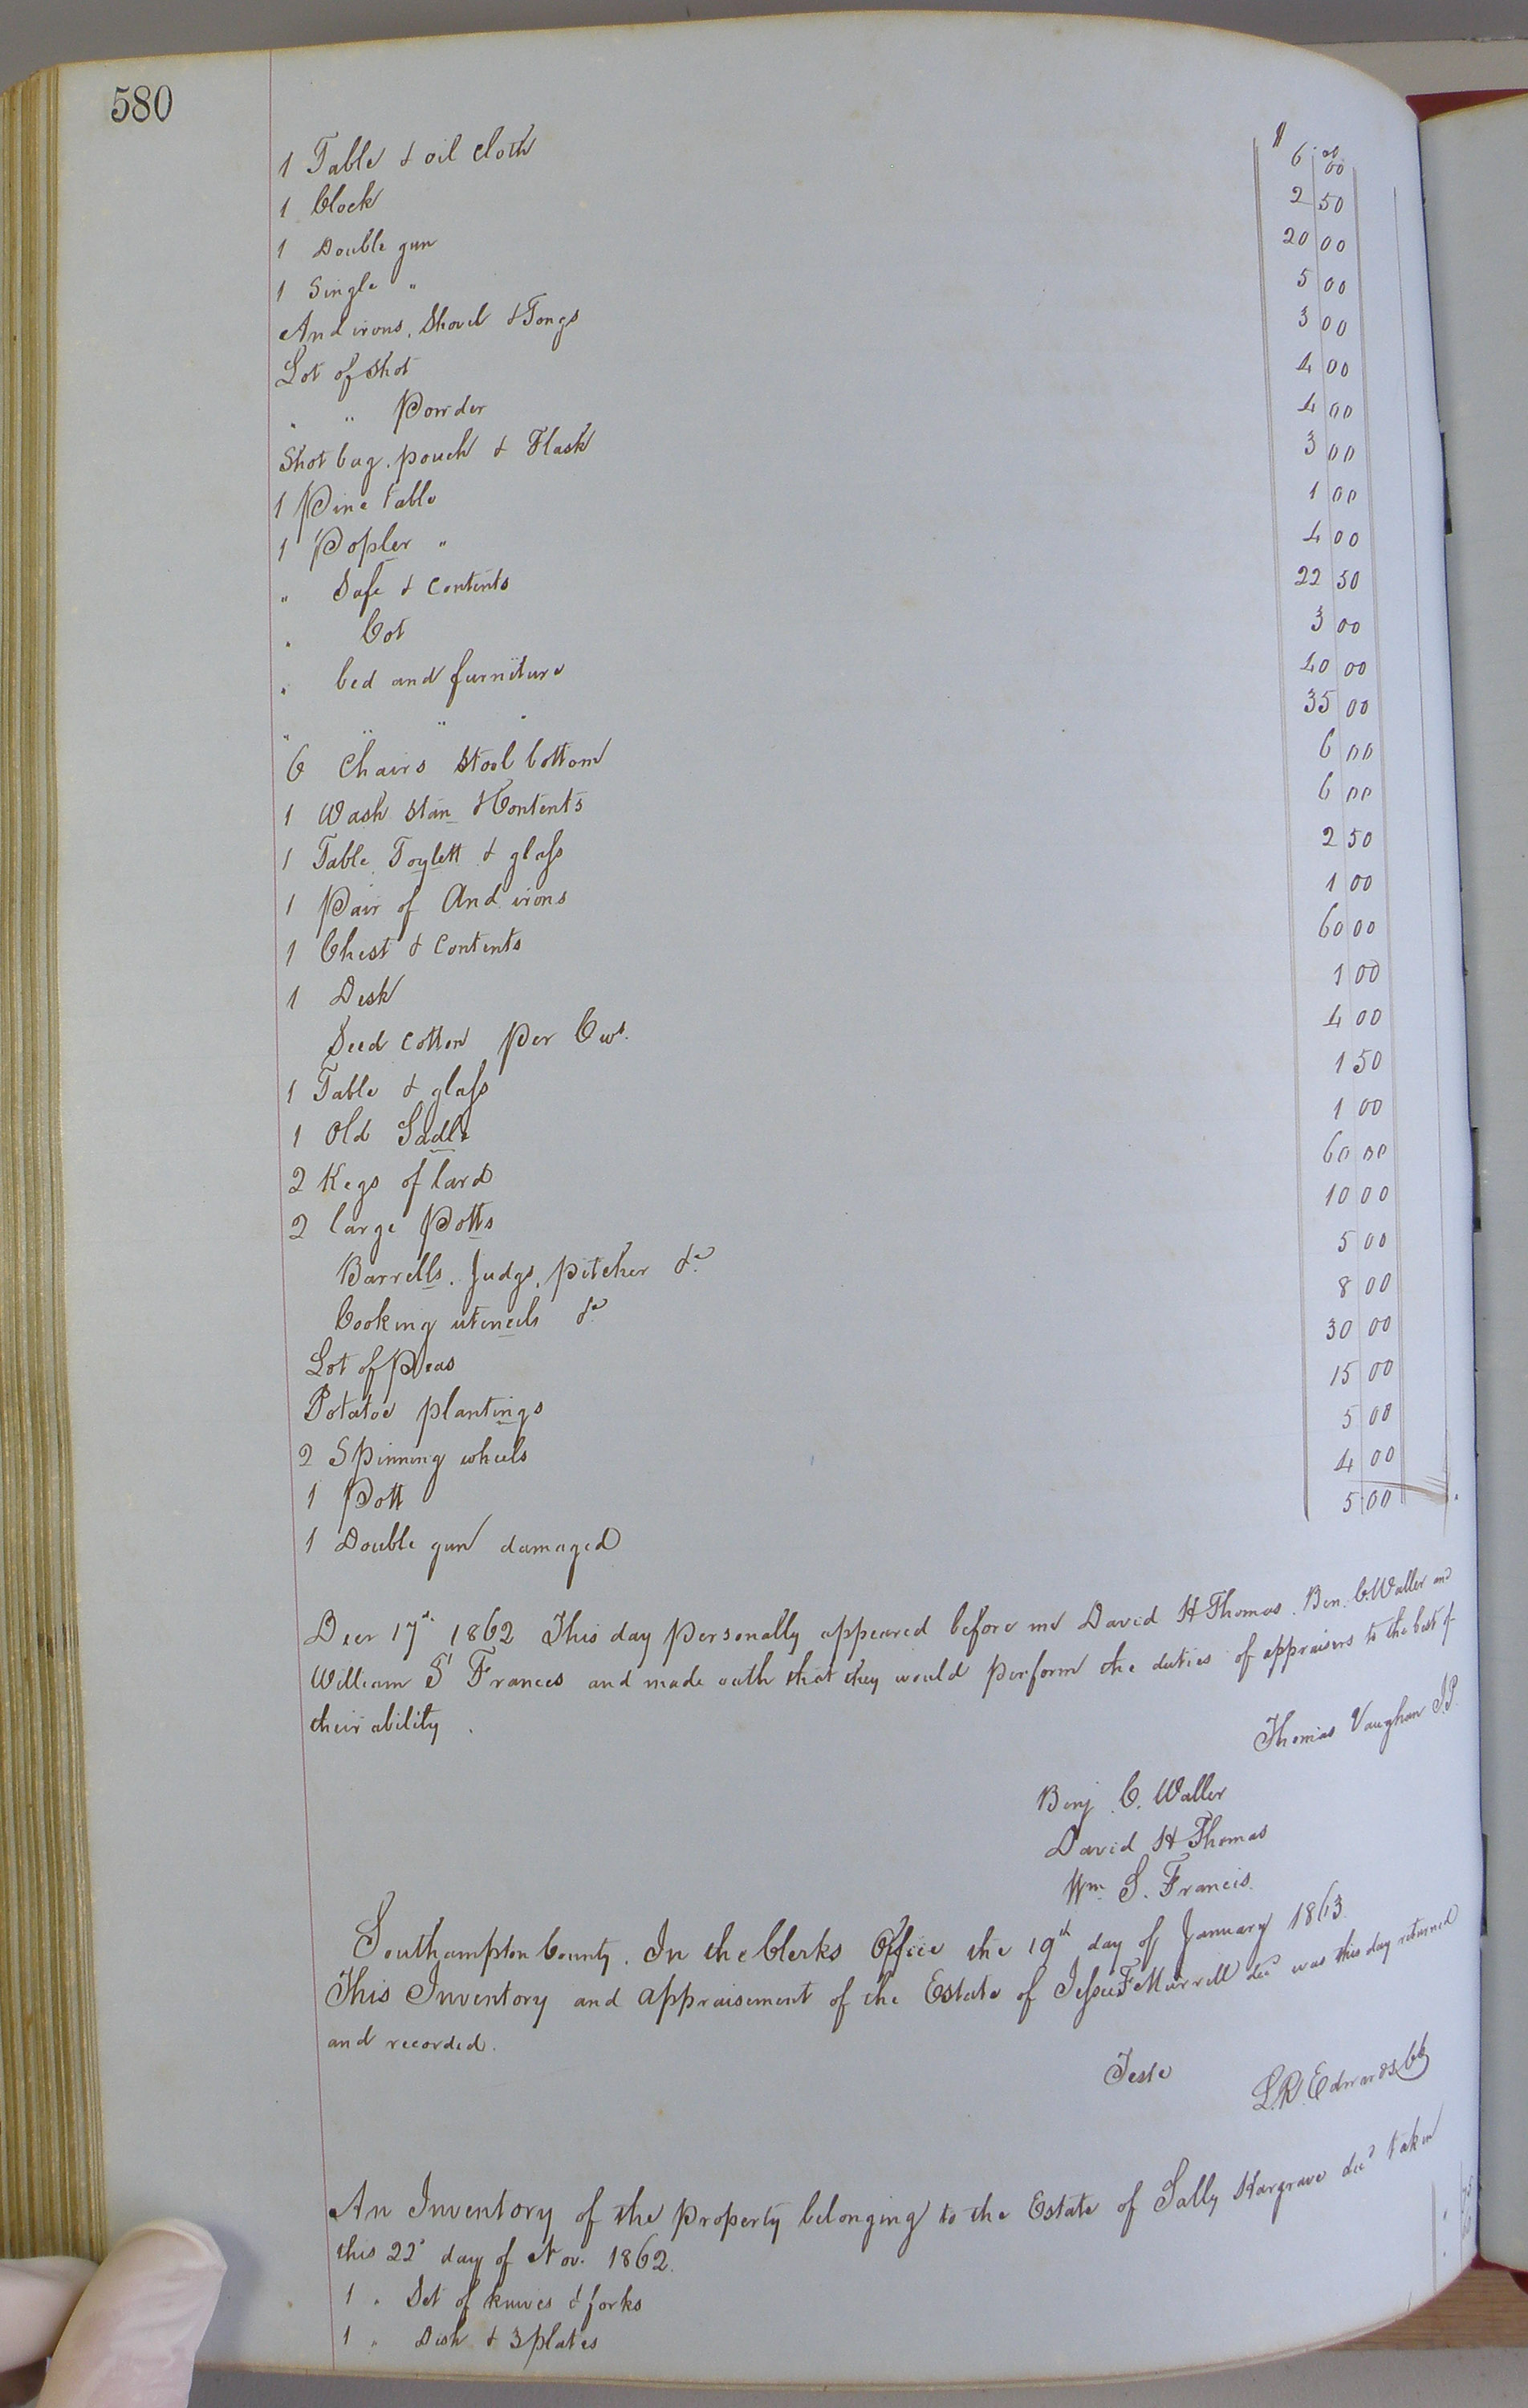 580
$ cts
1 Table & oil cloth 6 00
1 Clock 2 50
1 Double gun 20 00
1 Single " 5 00
And irons, Shovel & Tongs 3 00
Lot of shot 4 00
" " Powder 4 00
Shot bag, pouch & Flask 3 00
1 Pine table 1 00
1 Popler " 4 00
" Safe & contents 22 50
" Cot 3 00
" bed and furniture 40 00
" " " " 35 00
6 Chairs stool bottom 6 00
1 Wash stan & Contents 6 00
1 Table Toylett & glass 2 50
1 Pair of And irons 1 00
1 Chest & Contents 60 00
1 Desk 1 00
Seed cotton Per Cwt. 4 00
1 Table & glass 1 50
1 Old Sadle 1 00
2 Kegs of lard 60 00
2 large Potts 10 00
Barrells, Judgs, pitcher &c 5 00
Cooking utencils &c 8 00
Lot of Peas 30 00
Potatoe plantings 15 00
2 Spinning wheels 5 00
1 Pott 4 00
1 Double gun damaged 5 00
Decr 17th 1862 This day personally appeared before me David H Thomas, Ben. C. Waller and
William S Frances and made oath that they would perform the duties of appraisers to the best of
their ability.
Thomas Vaughan J.P.
Benj. C. Waller
David H Thomas
Wm. S. Francis.
Southampton County. In the Clerks Office the 19th day of January 1863.
This Inventory and appraisement of the Estate of Jesse F Murrell decd was this day returned
and recorded.
Teste
L.R. Edwards Clk
An Inventory of the property belonging to the Estate of Sally Hargrave decd taken
this 22d day of Nov. 1862.
1 " Set of knives & forks
1 " Dish & 3 plates